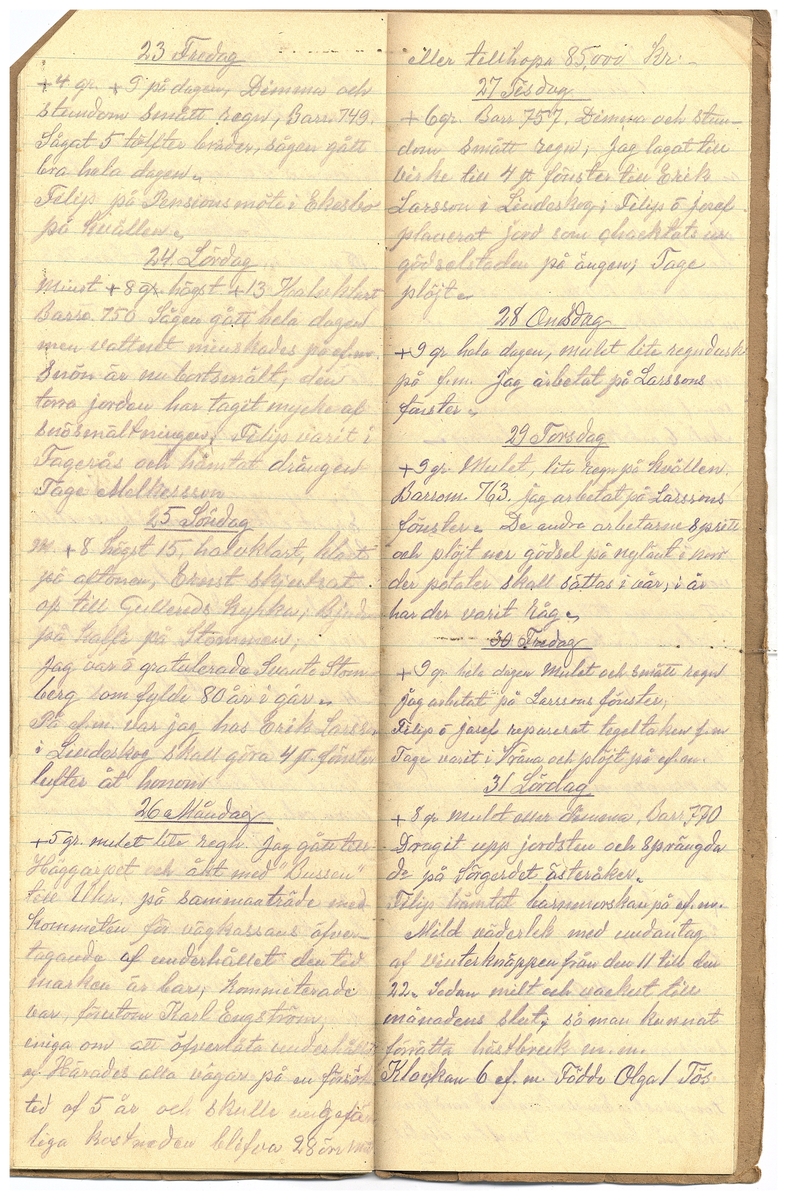 23 Fredag
+4 gr. +9 på dagen, Dimma och
stundom smått regn, Barr. 749.
Sågat 5 tolfter bräder, sågen gått
bra hela dagen.
Filip på Pensionsmöte i Ekesbo
på kvällen.
24 Lördag
Minst +8 gr. högst +13 Halvklart
Barro 750 Sågen gått hela dagen
men vattnet minskades på ef.m.
Snön är nu bortsmält, den
torra jorden har tagit mycke af
snösmältningen, Filip varit i
Fagerås och hämtat drängen
Tage Melkersson
25 Söndag
M. +8 högst 15, halvklart, klart
på aftonen, Ernst skjutsat
op till Gullereds Kyrka,
på kaffe på Stommen,
Jag var å gratulerade Svante Stom
berg som fylde 80 år i går.
På ef.m. var jag hos Erik Larss.
i Lindeskog skall göra 4 st. fönster
lufter åt honom
26 Måndag
+5 gr. mulet lite regn. Jag gått till
Häggarpet och åkt med "Bussen"
till Uhn. på sammanträde med
Kommiten för vägkassans öfver-
tagande af underhållet den tid
marken är bar, Kommiterade
var, förutom Karl Engström,
eniga om att öfverlåta underhållet
af Härades alla vägar på en försöks
tid af 5 år och skulle ungefär
liga kostnaden blifva 28 öre
eller tillhopa 85,000 Kr:-
27 Tisdag
+6 gr. Barr 757. Dimma och stun-
dom smått regn, jag lagat till
virke till 4 st fönster till Erik
Larsson i Lindeskog; Filip å josef
planerat jord som
gödselstaden på ängen; Tage
plöjt.
28 Onsdag
+9 gr hela dagen, mulet lite regndusk
på f.m. Jag arbetat på Larssons
fönster.
29 Torsdag
+9 gr. Mulet, lite regn på kvällen.
Barrom. 763. jag arbetat på Larssons
fönster. De andra arbetarna spritt
och plöjt ner gödsel på
der potater skall sättas i vår, i år
har der varit Råg.
30 Fredag
+9 gr hela dagen Mulet och smått regn
jag arbetat på Larssons fönster,
Filip å josef reparerat tegeltaken f.m.
Tage varit i och plöjt på ef.m.
31 Lördag
+8 gr mulet eller dimma, Barr, 770
Dragit upp jordsten och sprängda
de på Sörgerdet österåker.
Filip hämtat på ef.m.
Mild väderlek med undantag
af vinterknäppen från den 11 till den
22. Sedan milt och vackert till
månadens slut, så man kunnat
förrätta höstbruk m.m.
Klockan 6 ef.m. Födde Olga 1 Tös